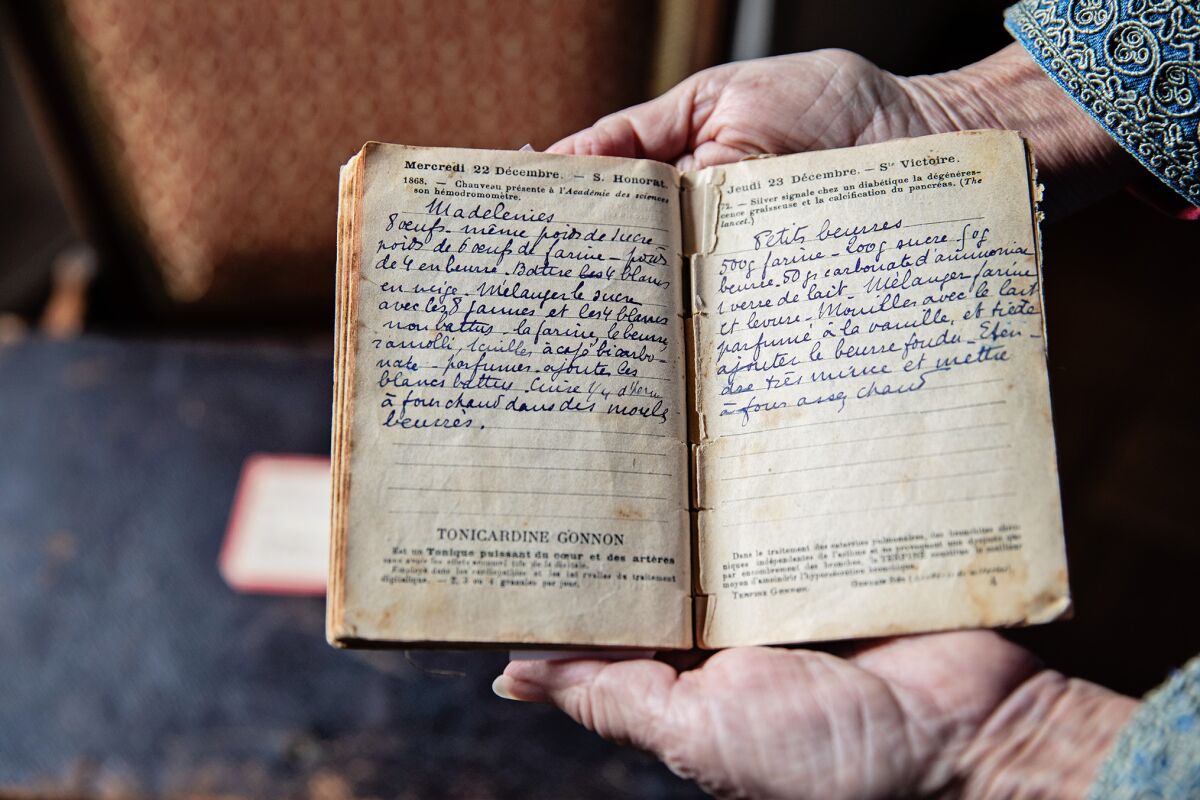 Mercredi 22 Décembre. — S. Honorat.
1868. — Chauveau présente à l'Académie des sciences
son hémodromomètre.
Madeleines
8 œufs – même poids de sucre –
poids de 6 œufs de farine – poids
de 4 en beurre. Battre les 4 blancs
en neige. Mélanger le sucre
avec les 8 jaunes et les 4 blancs
non battus – la farine, le beurre
ramolli, cuilles à café bicarbo-
nate – parfumer – ajouter les
blancs battus. Cuire 1/4 d'heure
à four chaud dans des moules
beurrés.
TONICARDINE GONNON
Est un Tonique puissant du cœur et des artères
sans avoir les effets de la digitale.
Employé dans les cardiopathies et les du traitement
digitalique. — 2, 3 ou 4 granules par jour.
Jeudi 23 Décembre. — Ste Victoire.
72. — Silver signale chez un diabétique la dégénéres-
cence graisseuse et la calcification du pancréas. (The
lancet.)
Petits beurres
500g farine – 200g sucre – 50g
beurre – 50gr carbonate d'ammoniaque
1 verre de lait – Mélanger farine
et levure – Mouiller avec le lait
parfumé à la vanille, et tiède
ajouter le beurre fondu –
très mince et mettre
à four assez chaud
Dans le traitement des catarrhes pulmonaires, des bronchites chro-
niques indépendantes de l'asthme et ne provoquant une dyspnée que
par encombrement des bronches, la TERPINE constitue le meilleur
moyen d'amoindrir l'hypersécrétion bronchique.
TERPINE GONNON.
4